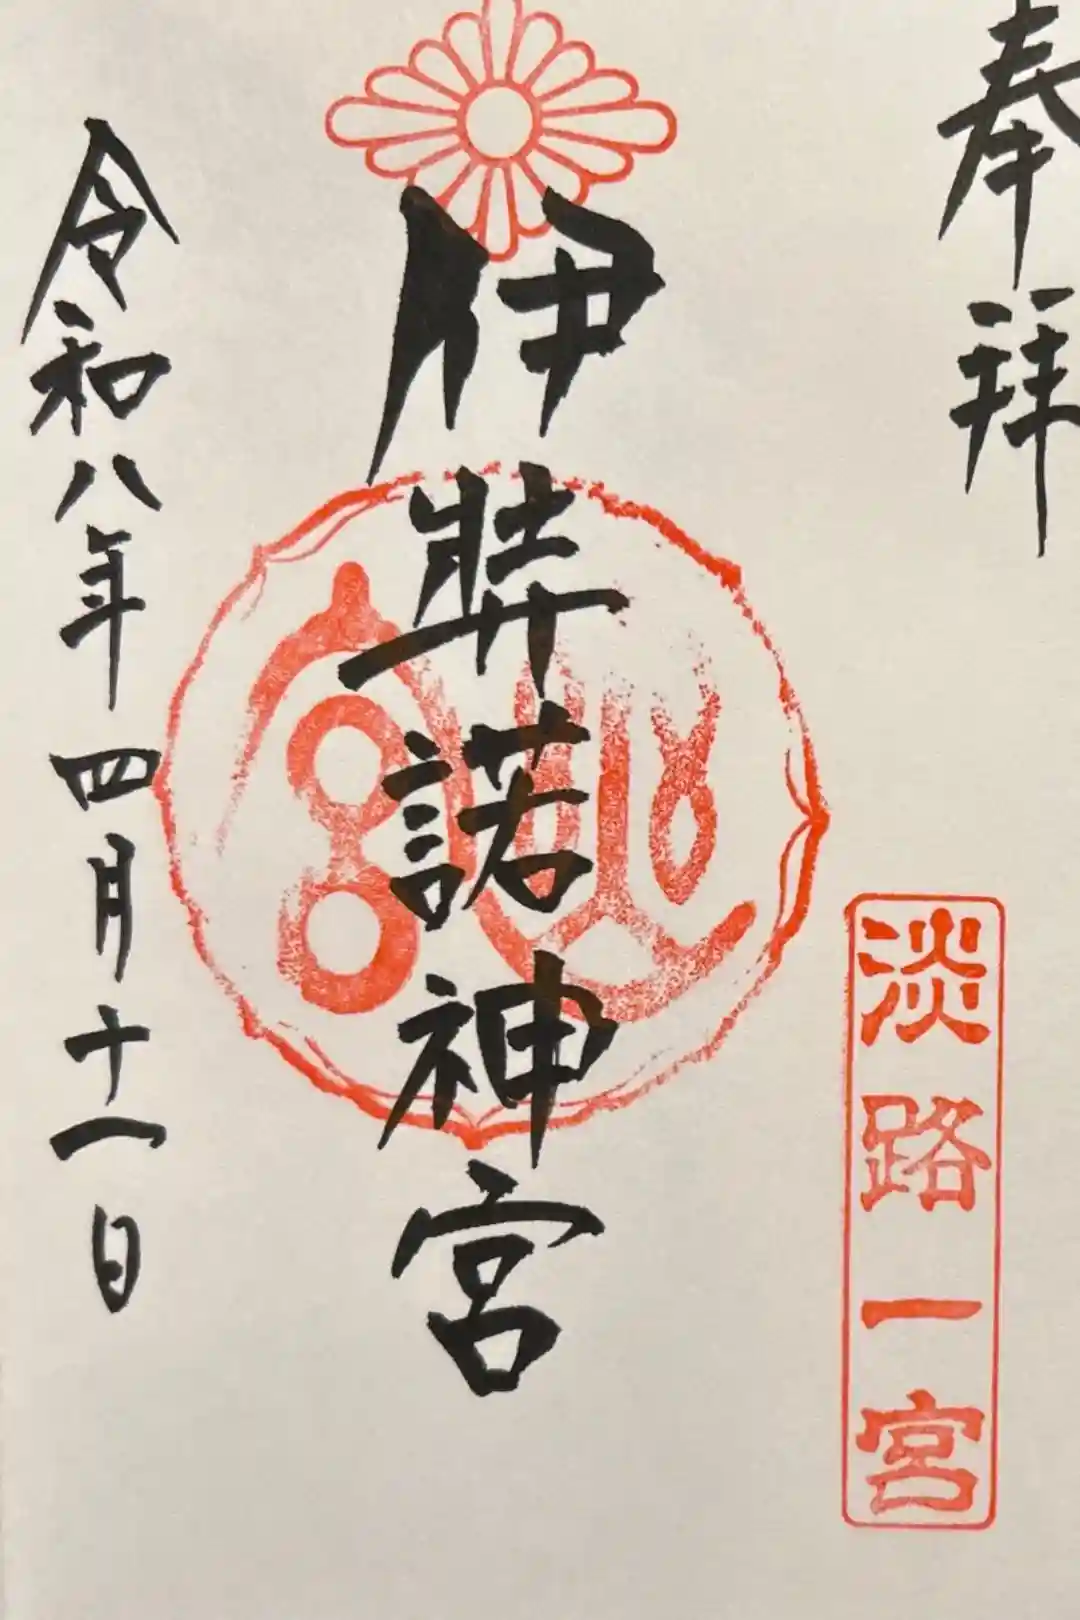 奉拝
淡路一宮
伊弉諾神宮
令和八年四月十一日